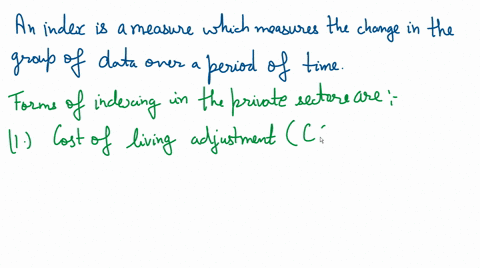 An index is a measure which measures the change in the
group of data over a period of time.
Forms of indexing in the private sector are :-
(1.) Cost of living adjustment (C